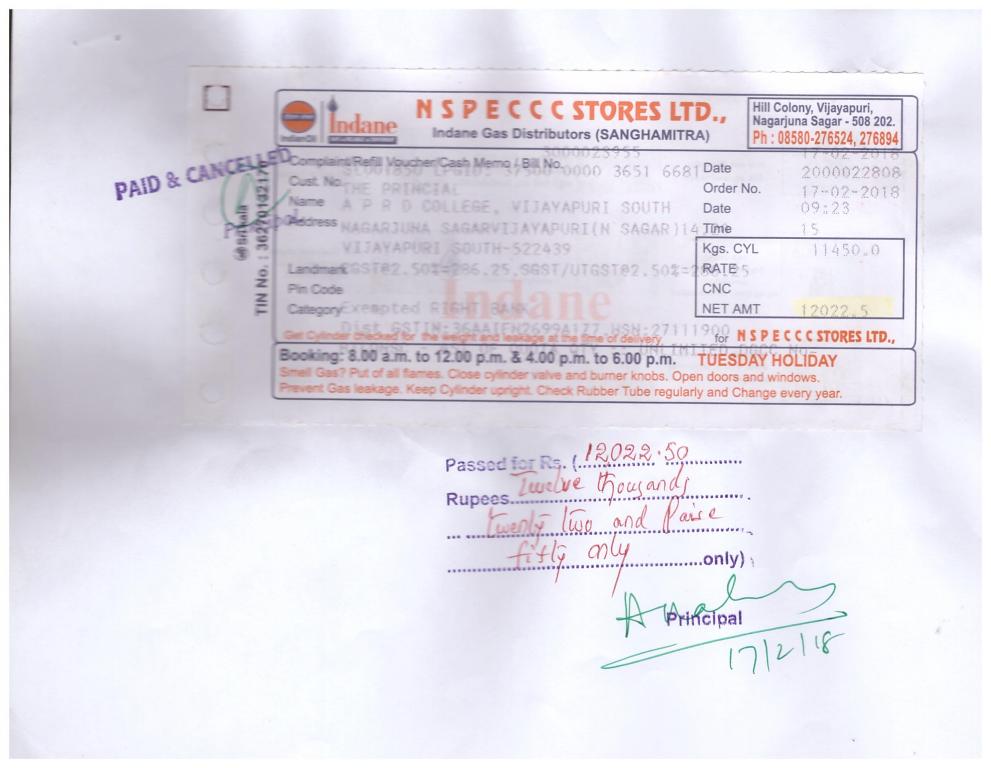 NSPECCC STORES LTD.,
Indane Gas Distributors (SANGHAMITRA)
IndianOil
Indane
Hill Colony, Vijayapuri,
Nagarjuna Sagar - 508 202.
Ph : 08580-276524, 276894
PAID & CANCELLED
TIN No. : 36270132171
Complaint/Refill Voucher/Cash Memo / Bill No.
3000023955
0000 3651 6681
Cust. No.
THE PRINCIAL
Name A P R D COLLEGE, VIJAYAPURI SOUTH
Address NAGARJUNA SAGARVIJAYAPURI(N SAGAR)
VIJAYAPURI SOUTH-522439
Landmark CGST@2.50%=286.25,SGST/UTGST@2.50%=286.25
Pin Code
Category Exempted RIGHT BANK
Indane
Dist GSTIN:36AAIFN2699A1Z7 HSN:27111900
UNLIMITED DGCC No-
17-02-2018
Date 2000022808
Order No. 17-02-2018
Date 09:23
Time 15
Kgs. CYL 11450.0
RATE
CNC
NET AMT 12022.5
Get Cylinder checked for the weight and leakage at the time of delivery
for NSPECCC STORES LTD.,
Booking: 8.00 a.m. to 12.00 p.m. & 4.00 p.m. to 6.00 p.m. TUESDAY HOLIDAY
Smell Gas? Put of all flames. Close cylinder valve and burner knobs. Open doors and windows.
Prevent Gas leakage. Keep Cylinder upright. Check Rubber Tube regularly and Change every year.
Passed for Rs. (12022.50
Rupees Twelve thousands
twenty two and Paise
fifty only
only)
Principal
17/2/18